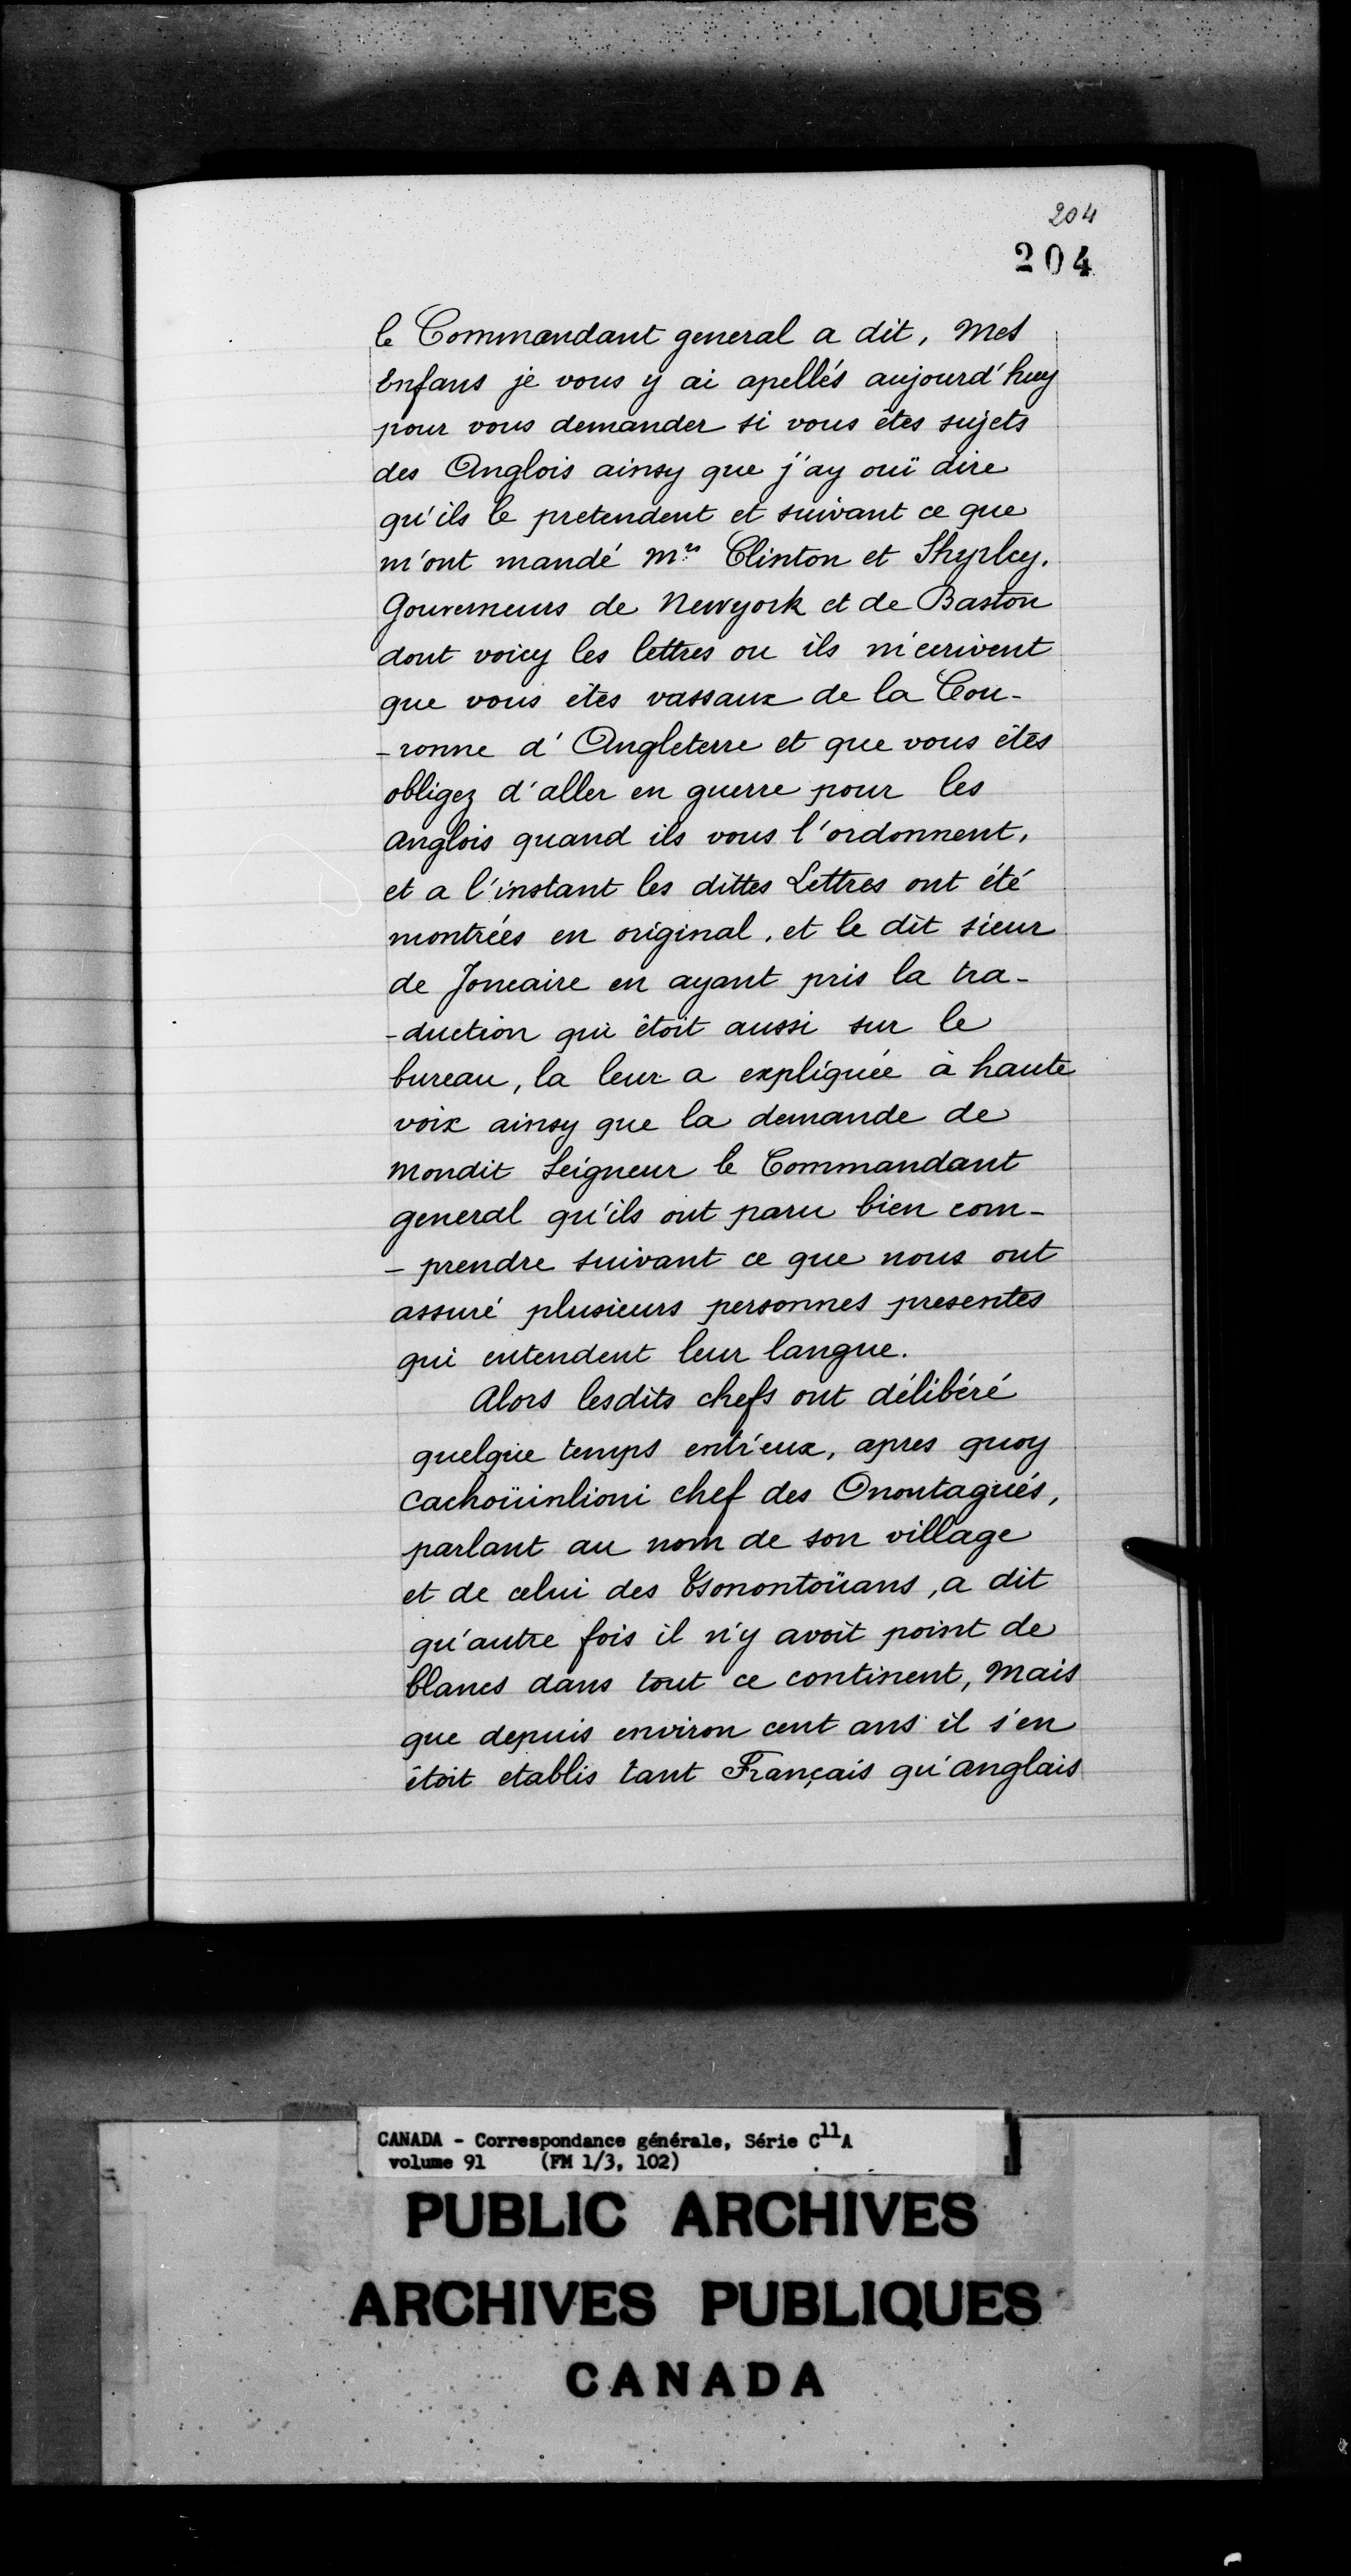 204
204
le Commandant general a dit, Mes
Enfans je vous y ai apellés aujourd'huy
pour vous demander si vous êtes sujets
des Anglois ainsy que j'ay ouï dire
qu'ils le pretendent et suivant ce que
m'ont mandé Mrs Clinton et Shyrley.
Gouverneurs de Newyork et de Baston
dont voicy les lettres ou ils m'ecrivent
que vous êtes vassaux de la Cou-
-ronne d'Angleterre et que vous êtes
obligez d'aller en guerre pour les
Anglois quand ils vous l'ordonnent,
et a l'instant les dittes Lettres ont été
montrées en original, et le dit sieur
de Joncaire en ayant pris la tra-
-duction qui étoit aussi sur le
bureau, la leur a expliquée à haute
voix ainsy que la demande de
Mondit Seigneur le Commandant
general qu'ils ont paru bien com-
-prendre suivant ce que nous ont
assuré plusieurs personnes presentes
qui entendent leur langue.
Alors lesdits chefs ont délibéré
quelque temps entr'eux, apres quoy
Cachoüinlioni chef des Onontagués,
parlant au nom de son village
et de celui des Tsonontoüans, a dit
qu'autre fois il n'y avoit point de
blancs dans tout ce continent, Mais
que depuis environ cent ans il s'en
étoit etablis tant Français qu'anglais
CANADA - Correspondance générale, Série C11A
volume 91 (FM 1/3, 102)
PUBLIC ARCHIVES
ARCHIVES PUBLIQUES
CANADA